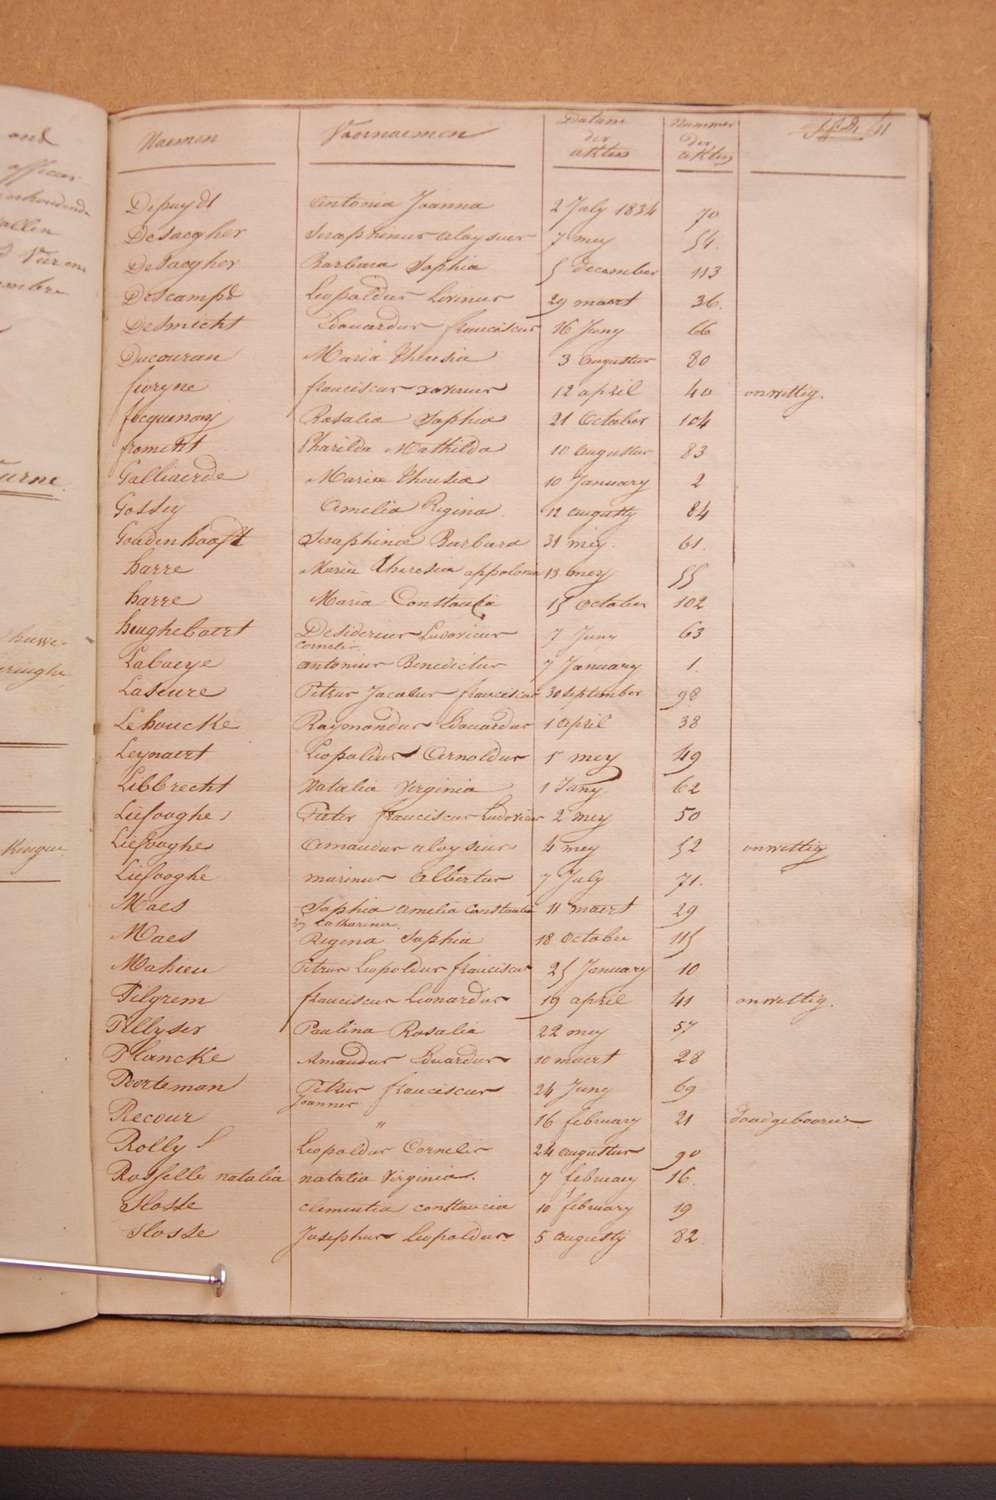 Naemen Voornaemen Datum der akten Nummer der akten
Depuydt Antonia Joanna 2 July 1834 70
Desaegher Seraphinus aloysius 7 mey 54.
DeSaegher Barbara Sophia 5 december 113
Descamps Leopoldus Livinus 29 maert 36.
Desmicht Edouardus franciscus 16 Juny 66
Ducouran Maria Theresia 3 augustus 80
fevryne franciscus xaverius 12 april 40 onwettig.
focquenoy Rosalia Sophia 21 October 104
fromint Pharilda Mathilda 10 augustus 83
Galliaerde Maria Theresia 10 January 2
Gossey Amelia Regina 12 augusty 84
Goudenhooft Seraphina Barbara 31 mey. 61.
harre Maria Theresia appolonia 13 mey 55
harre Maria Constantia 15 October 102
heughebaert Desiderius Ludovicus 7 Juny 63
Cornelis
Labaeye antonius Benedictus 7 January 1.
Laseure Petrus Jacobus franciscus 30 september 98
Lehoucke Raymondus Edouardus 1 april 38
Leynaert Leopoldus Arnoldus 5 mey 49
Libbrecht Natalia Virginia 1 Juny 62
Liefooghe Pieter franciscus Ludovicus 2 mey 50
Liefooghe Amandus aloysius 4 mey 52 onwettig
Liefooghe marinus Albertus 7 July 71.
Maes Sophia Amelia Constantia 11 maert 29
Catharina.
Maes Regina Sophia 18 October 115
Mahieu Petrus Leopoldus franciscus 25 January 10
Pilgrem franciscus Leonardus 19 april 41 onwettig.
Pillyser Paulina Rosalia 22 mey 57
Plancke Amandus Eduardus 10 maert 28
Poorteman Petrus franciscus 24 Juny 69
Joannes
Recour " 16 february 21 doodgebooren
Rolly Leopoldus Cornelis 24 augustus 90
Rosselle natalia natalia Virginia. 7 february 16.
Slosse clementia constancia 10 february 19
Slosse Josephus Leopoldus 5 augusty 82